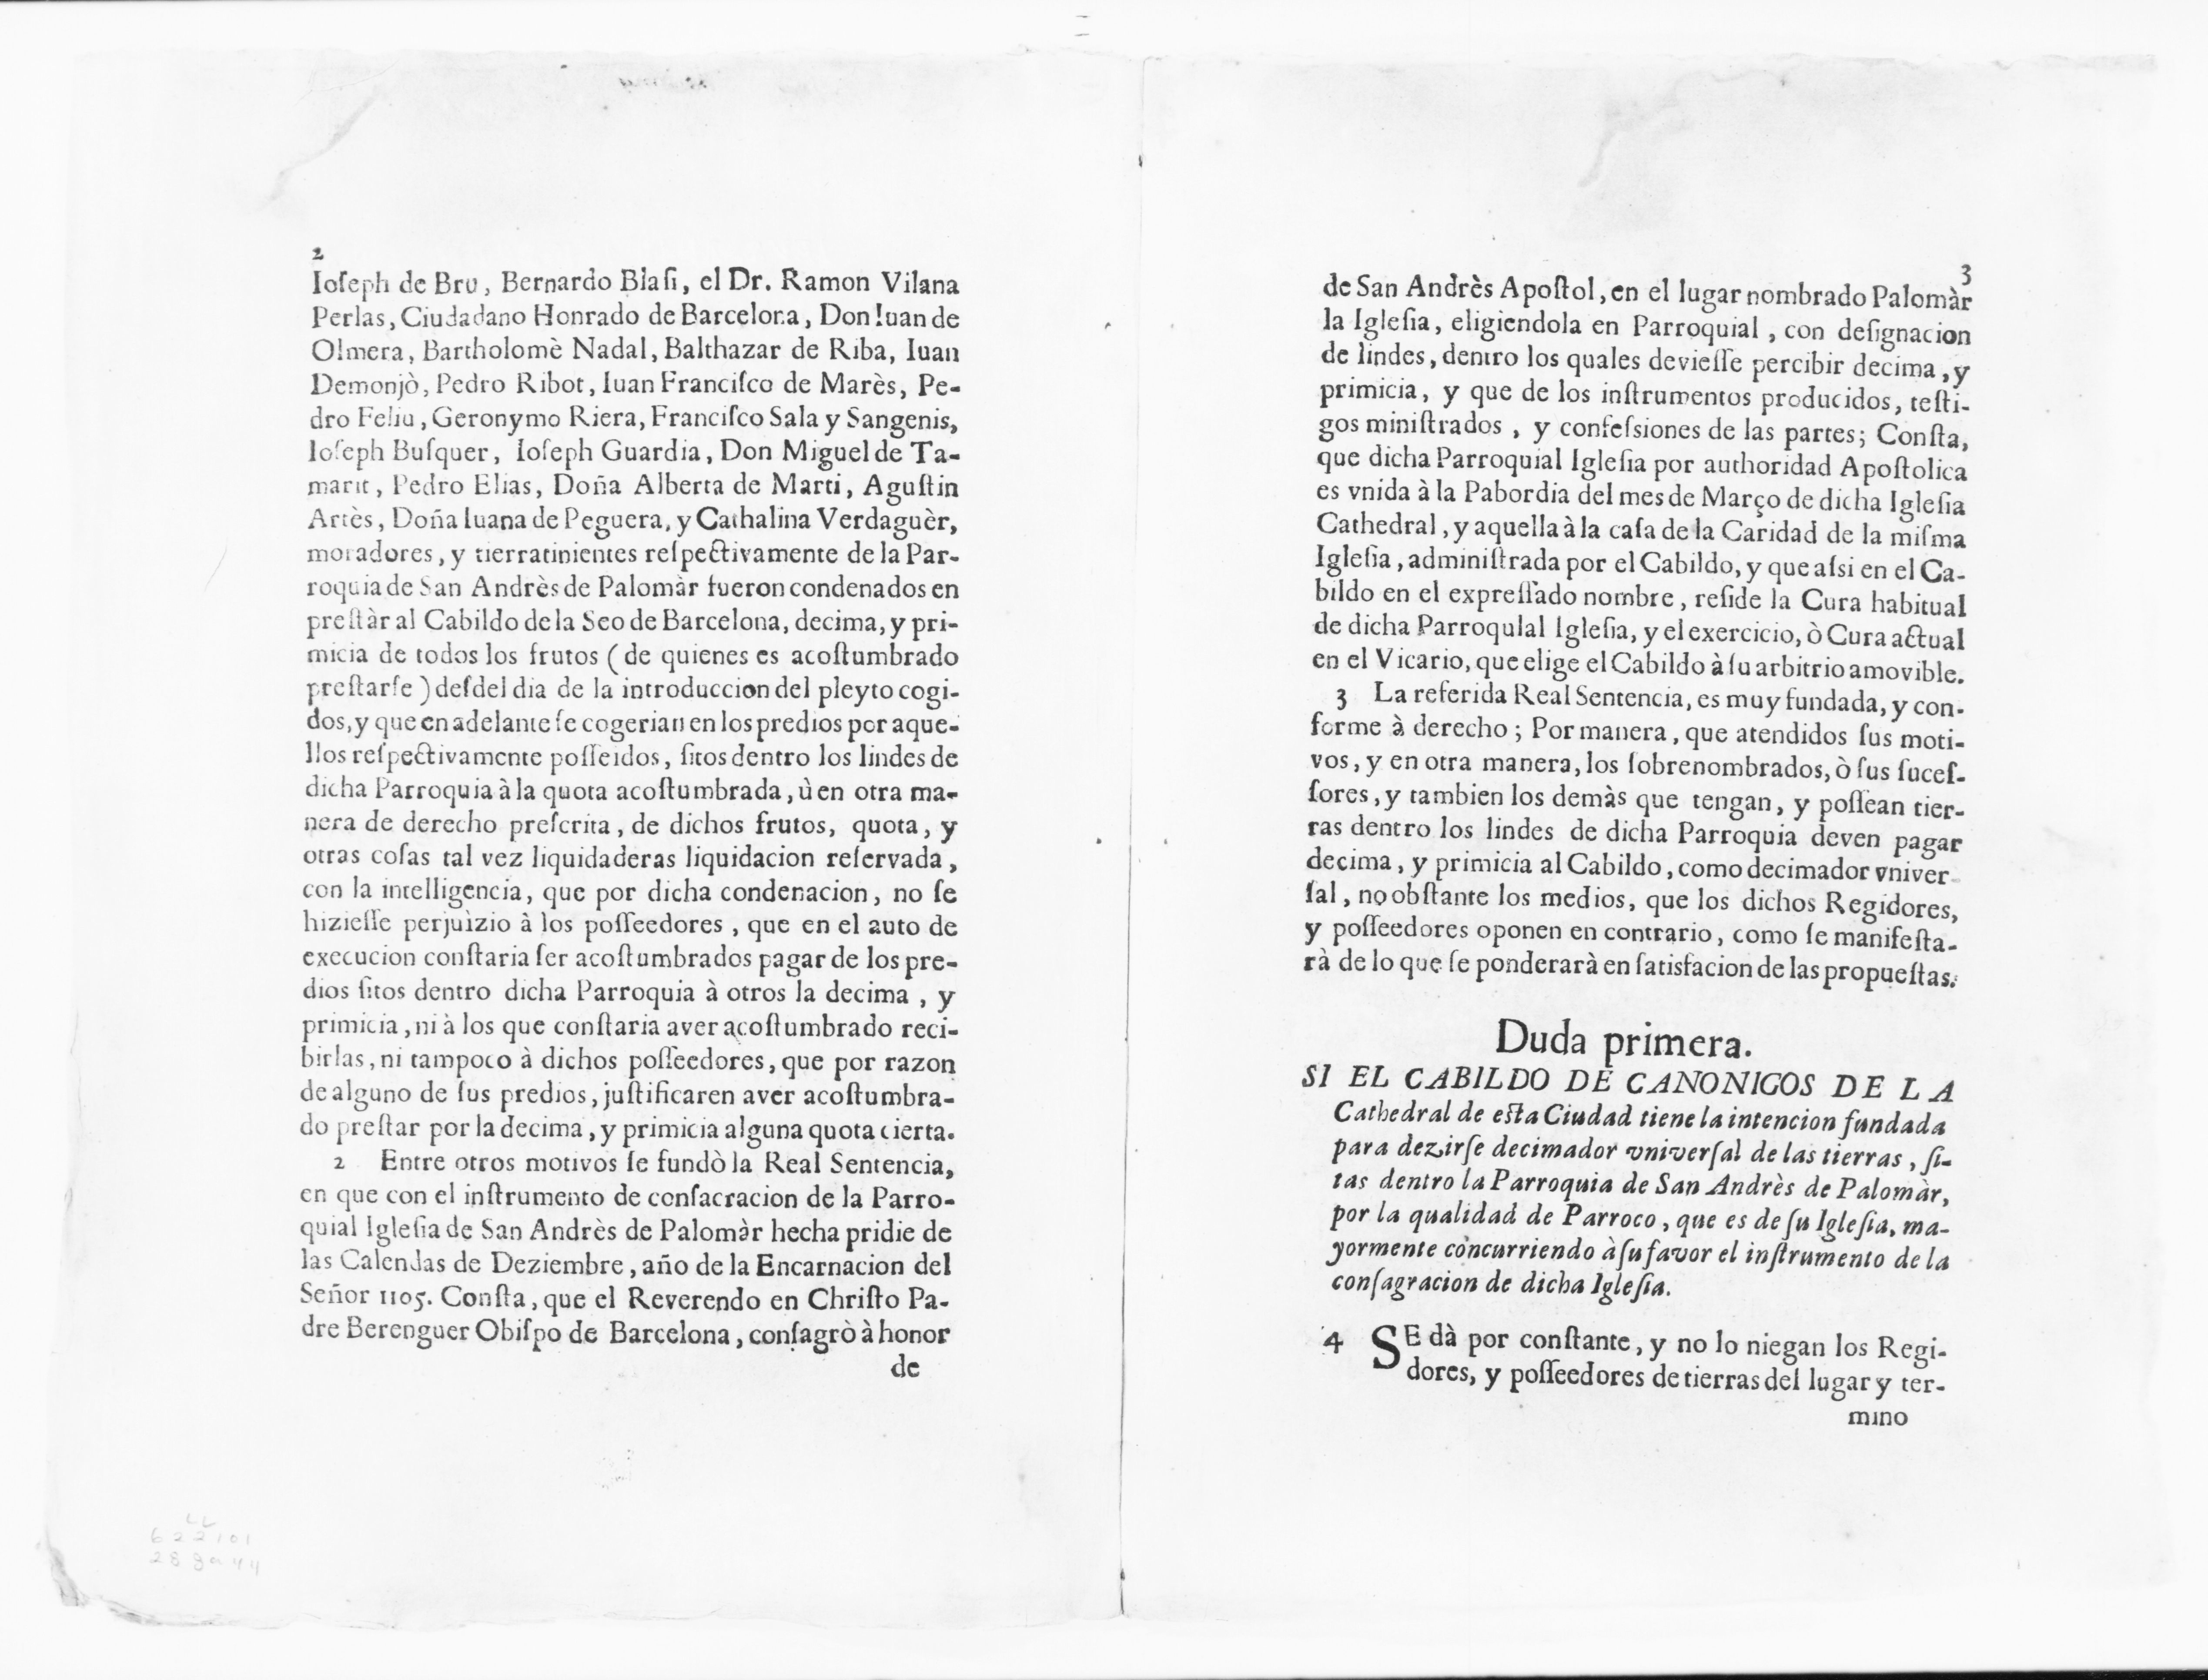 2
Ioſeph de Bru, Bernardo Blaſi, el Dr. Ramon Vilana
Perlas, Ciudadano Honrado de Barcelona, Don Iuan de
Olmera, Bartholomè Nadal, Balthazar de Riba, Iuan
Demonjò, Pedro Ribot, Iuan Franciſco de Marès, Pe-
dro Feliu, Geronymo Riera, Franciſco Sala y Sangenis,
Ioſeph Buſquer, Ioſeph Guardia, Don Miguel de Ta-
marit, Pedro Elias, Doña Alberta de Marti, Aguſtin
Artès, Doña Iuana de Peguera, y Cathalina Verdaguèr,
moradores, y tierratinientes reſpectivamente de la Par-
roquia de San Andrès de Palomàr fueron condenados en
preſtàr al Cabildo de la Seo de Barcelona, decima, y pri-
micia de todos los frutos ( de quienes es acoſtumbrado
preſtarſe ) deſdel dia de la introduccion del pleyto cogi-
dos, y que en adelante ſe cogerian en los predios por aque-
llos reſpectivamente poſſeidos, ſitos dentro los lindes de
dicha Parroquia à la quota acoſtumbrada, ù en otra ma-
nera de derecho preſcrita, de dichos frutos, quota, y
otras coſas tal vez liquidaderas liquidacion reſervada,
con la intelligencia, que por dicha condenacion, no ſe
hizieſſe perjuìzio à los poſſeedores, que en el auto de
execucion conſtaria ſer acoſtumbrados pagar de los pre-
dios ſitos dentro dicha Parroquia à otros la decima, y
primicia, ni à los que conſtaria aver acoſtumbrado reci-
birlas, ni tampoco à dichos poſſeedores, que por razon
de alguno de ſus predios, juſtificaren aver acoſtumbra-
do preſtar por la decima, y primicia alguna quota cierta.
2 Entre otros motivos ſe fundò la Real Sentencia,
en que con el inſtrumento de conſacracion de la Parro-
quial Igleſia de San Andrès de Palomàr hecha pridie de
las Calendas de Deziembre, año de la Encarnacion del
Señor 1105. Conſta, que el Reverendo en Chriſto Pa-
dre Berenguer Obiſpo de Barcelona, conſagrò à honor
de
3
de San Andrès Apoſtol, en el lugar nombrado Palomàr
la Igleſia, eligiendola en Parroquial, con deſignacion
de lindes, dentro los quales devieſſe percibir decima, y
primicia, y que de los inſtrumentos producidos, teſti-
gos miniſtrados, y confeſsiones de las partes; Conſta,
que dicha Parroquial Igleſia por authoridad Apoſtolica
es vnida à la Pabordia del mes de Março de dicha Igleſia
Cathedral, y aquella à la caſa de la Caridad de la miſma
Igleſia, adminiſtrada por el Cabildo, y que aſsi en el Ca-
bildo en el expreſſado nombre, reſide la Cura habitual
de dicha Parroqulal Igleſia, y el exercicio, ò Cura actual
en el Vicario, que elige el Cabildo à ſu arbitrio amovible.
3 La referida Real Sentencia, es muy fundada, y con-
forme à derecho; Por manera, que atendidos ſus moti-
vos, y en otra manera, los ſobrenombrados, ò ſus ſuceſ-
ſores, y tambien los demàs que tengan, y poſſean tier-
ras dentro los lindes de dicha Parroquia deven pagar
decima, y primicia al Cabildo, como decimador vniver-
ſal, no obſtante los medios, que los dichos Regidores,
y poſſeedores oponen en contrario, como ſe manifeſta-
rà de lo que ſe ponderarà en ſatisfacion de las propueſtas.
Duda primera.
SI EL CABILDO DE CANONIGOS DE LA
Cathedral de eſta Ciudad tiene la intencion fundada
para dezirſe decimador vniverſal de las tierras, ſi-
tas dentro la Parroquia de San Andrès de Palomàr,
por la qualidad de Parroco, que es de ſu Igleſia, ma-
yormente concurriendo à ſu favor el inſtrumento de la
conſagracion de dicha Igleſia.
4 SE dà por conſtante, y no lo niegan los Regi-
dores, y poſſeedores de tierras del lugar y ter-
mino
622101
288a44